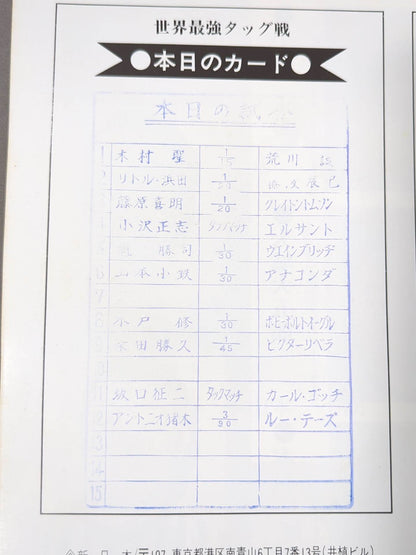 世界最強タッグ戦
●本日のカード●
本日の試合
1 木村 聖 1/15 荒川 誠
2 リトル・浜田 1/20 佐久辰巳
3 藤原喜明 1/20 クレイトントムソン
4 小沢正志 タックマッチ エルサント
勝司 1/30 ウエインブリッヂ
6 山本小鉄 1/30 アナコンダ
7
8 木戸 修 1/30 ボビーボルトイーグル
9 永田勝久 1/45 ビクターリベラ
0
11 坂口征二 タックマッチ カール・ゴッチ
12 アントニオ猪木 3/90 ルー・テーズ
13
14
15
〒107 東京都港区南青山6丁目7番13号(共植ビル)